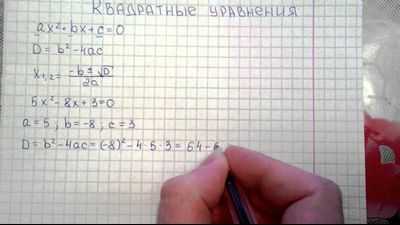 Квадратные уравнения
ax²+bx+c=0
D = b²-4ac
x₁,₂ = (-b±√D)/2a
5x²-8x+3=0
a=5; b=-8; c=3
D = b²-4ac = (-8)²-4·5·3 = 64-6